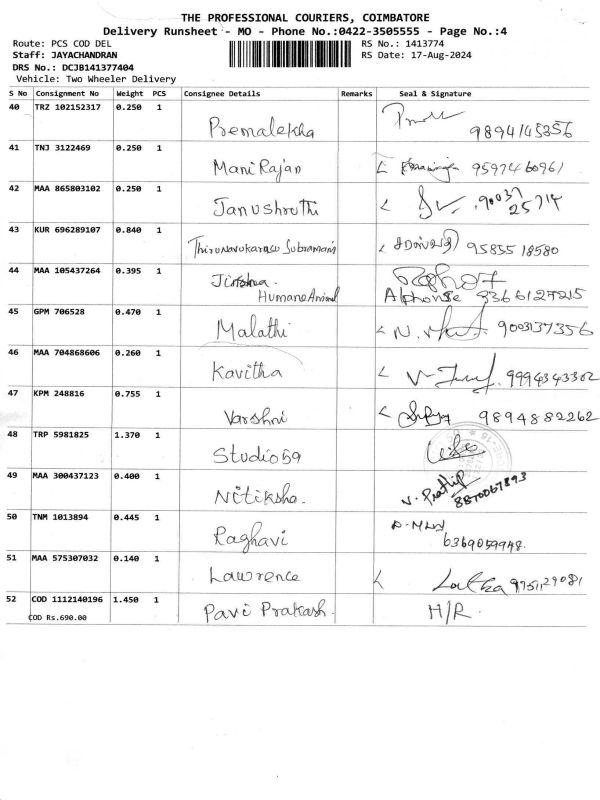 THE PROFESSIONAL COURIERS, COIMBATORE
Delivery Runsheet - MO - Phone No.:0422-3505555 - Page No.:4
Route: PCS COD DEL RS No.: 1413774
Staff: JAYACHANDRAN RS Date: 17-Aug-2024
DRS No.: DCJB141377404
Vehicle: Two Wheeler Delivery
S No Consignment No Weight PCS Consignee Details Remarks Seal & Signature
40 TRZ 102152317 0.250 1 Premalekha 9894145356
41 TNJ 3122469 0.250 1 Mani Rajan 9597460961
42 MAA 865803102 0.250 1 Janushruthi 90037
25714
43 KUR 696289107 0.840 1 Thirunavukarasu Subramani 9585518580
44 MAA 105437264 0.395 1
Humane Animal Alphonse
45 GPM 706528 0.470 1 Malathi 9003137356
46 MAA 704868606 0.260 1 Kavitha 9994343302
47 KPM 248816 0.755 1 Varshni 9894882262
48 TRP 5981825 1.370 1 Studio59
49 MAA 300437123 0.400 1 Nitiksha. V. Prathip
8870067893
50 TNM 1013894 0.445 1 Raghavi
51 MAA 575307032 0.140 1 Lawrence Latha
52 COD 1112140196 1.450 1 Pavi Prakash. H/R.
COD Rs.690.00